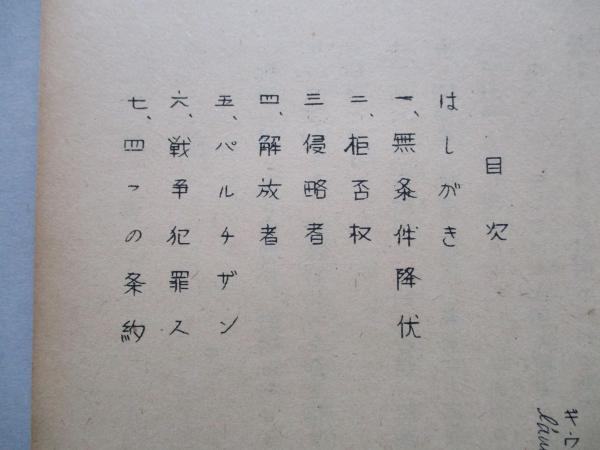 目次
はしがき
一、無条件降伏
二、拒否权
三、侵略者
四、解放者
五、パルチザン
六、戦争犯罪人
七、四つの条約
キ・ワ